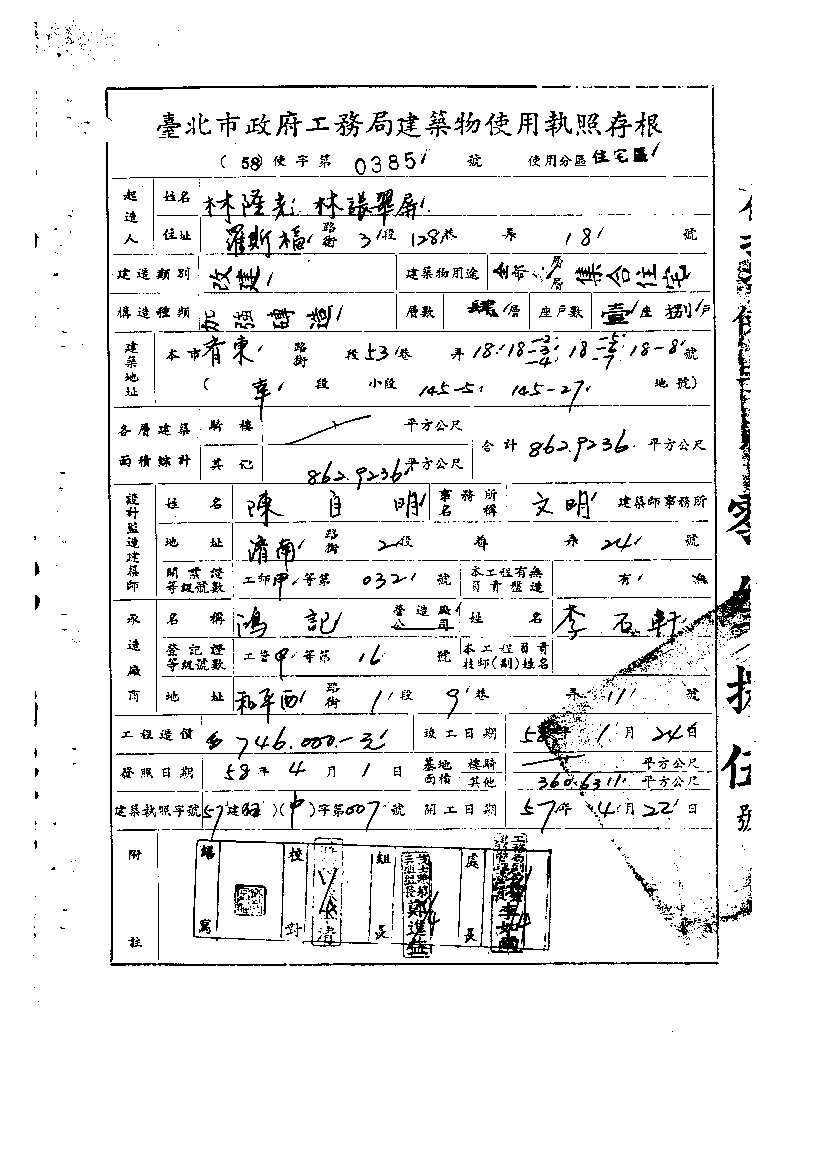 臺北市政府工務局建築物使用執照存根
(58使字第0385號 使用分區 住宅區
起造人 姓名 林隆 林張翠屏
住址 羅斯福路街3段128巷 弄18號
建造類別 改建 建築物用途 全部 層 集合住宅
構造種類 加強磚造 層數 肆層 座戶數 壹座捌戶
建築地址 本市 東路街 段53巷 弄18 18-2-3-4 18-5-6-7 18-8號
( 段 小段 145-5 145-27 地號)
各層建築面積總計 騎樓 平方公尺 合計862.9236平方公尺
其它 862.9236平方公尺
設計監造建築師 姓名 陳自明 事務所名稱 文明 建築師事務所
地址 濟南路街2段 巷 弄24號
開業證等級號數 工師甲等第0321號 本工程有無負責監造 有 無
承造廠商 名稱 鴻記 營造廠公司 姓名 李石軒
登記證等級號數 工營甲等第16號 本工程負責技師(副)姓名
地址 和平西路街1段9巷 弄11號
工程造價 746.000-元 竣工日期 58年1月24日
發照日期 58年4月1日 基地面積 樓騎 平方公尺
其他 360.6311平方公尺
建築執照字號 57建( )(中)字第007號 開工日期 57年4月22日
附註 繕寫 校對 組長 處長
號